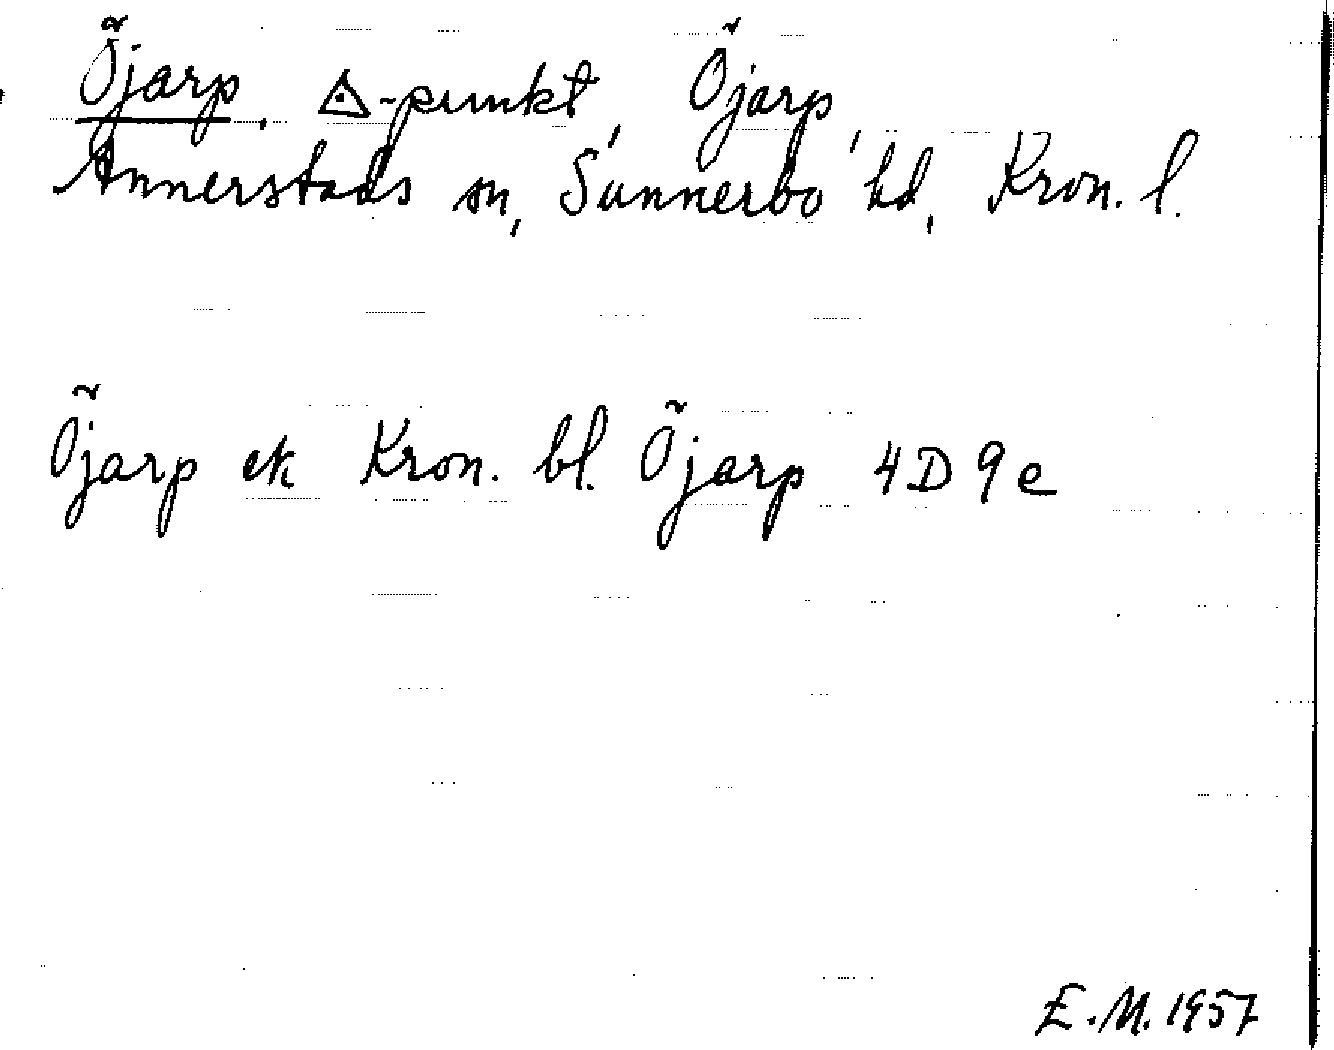 Öjarp, △-punkt, Öjarp,
Annerstads sn, Sunnerbo hd, Kron. l.
Öjarp ek Kron. bl. Öjarp 4D 9e
E.M. 1957